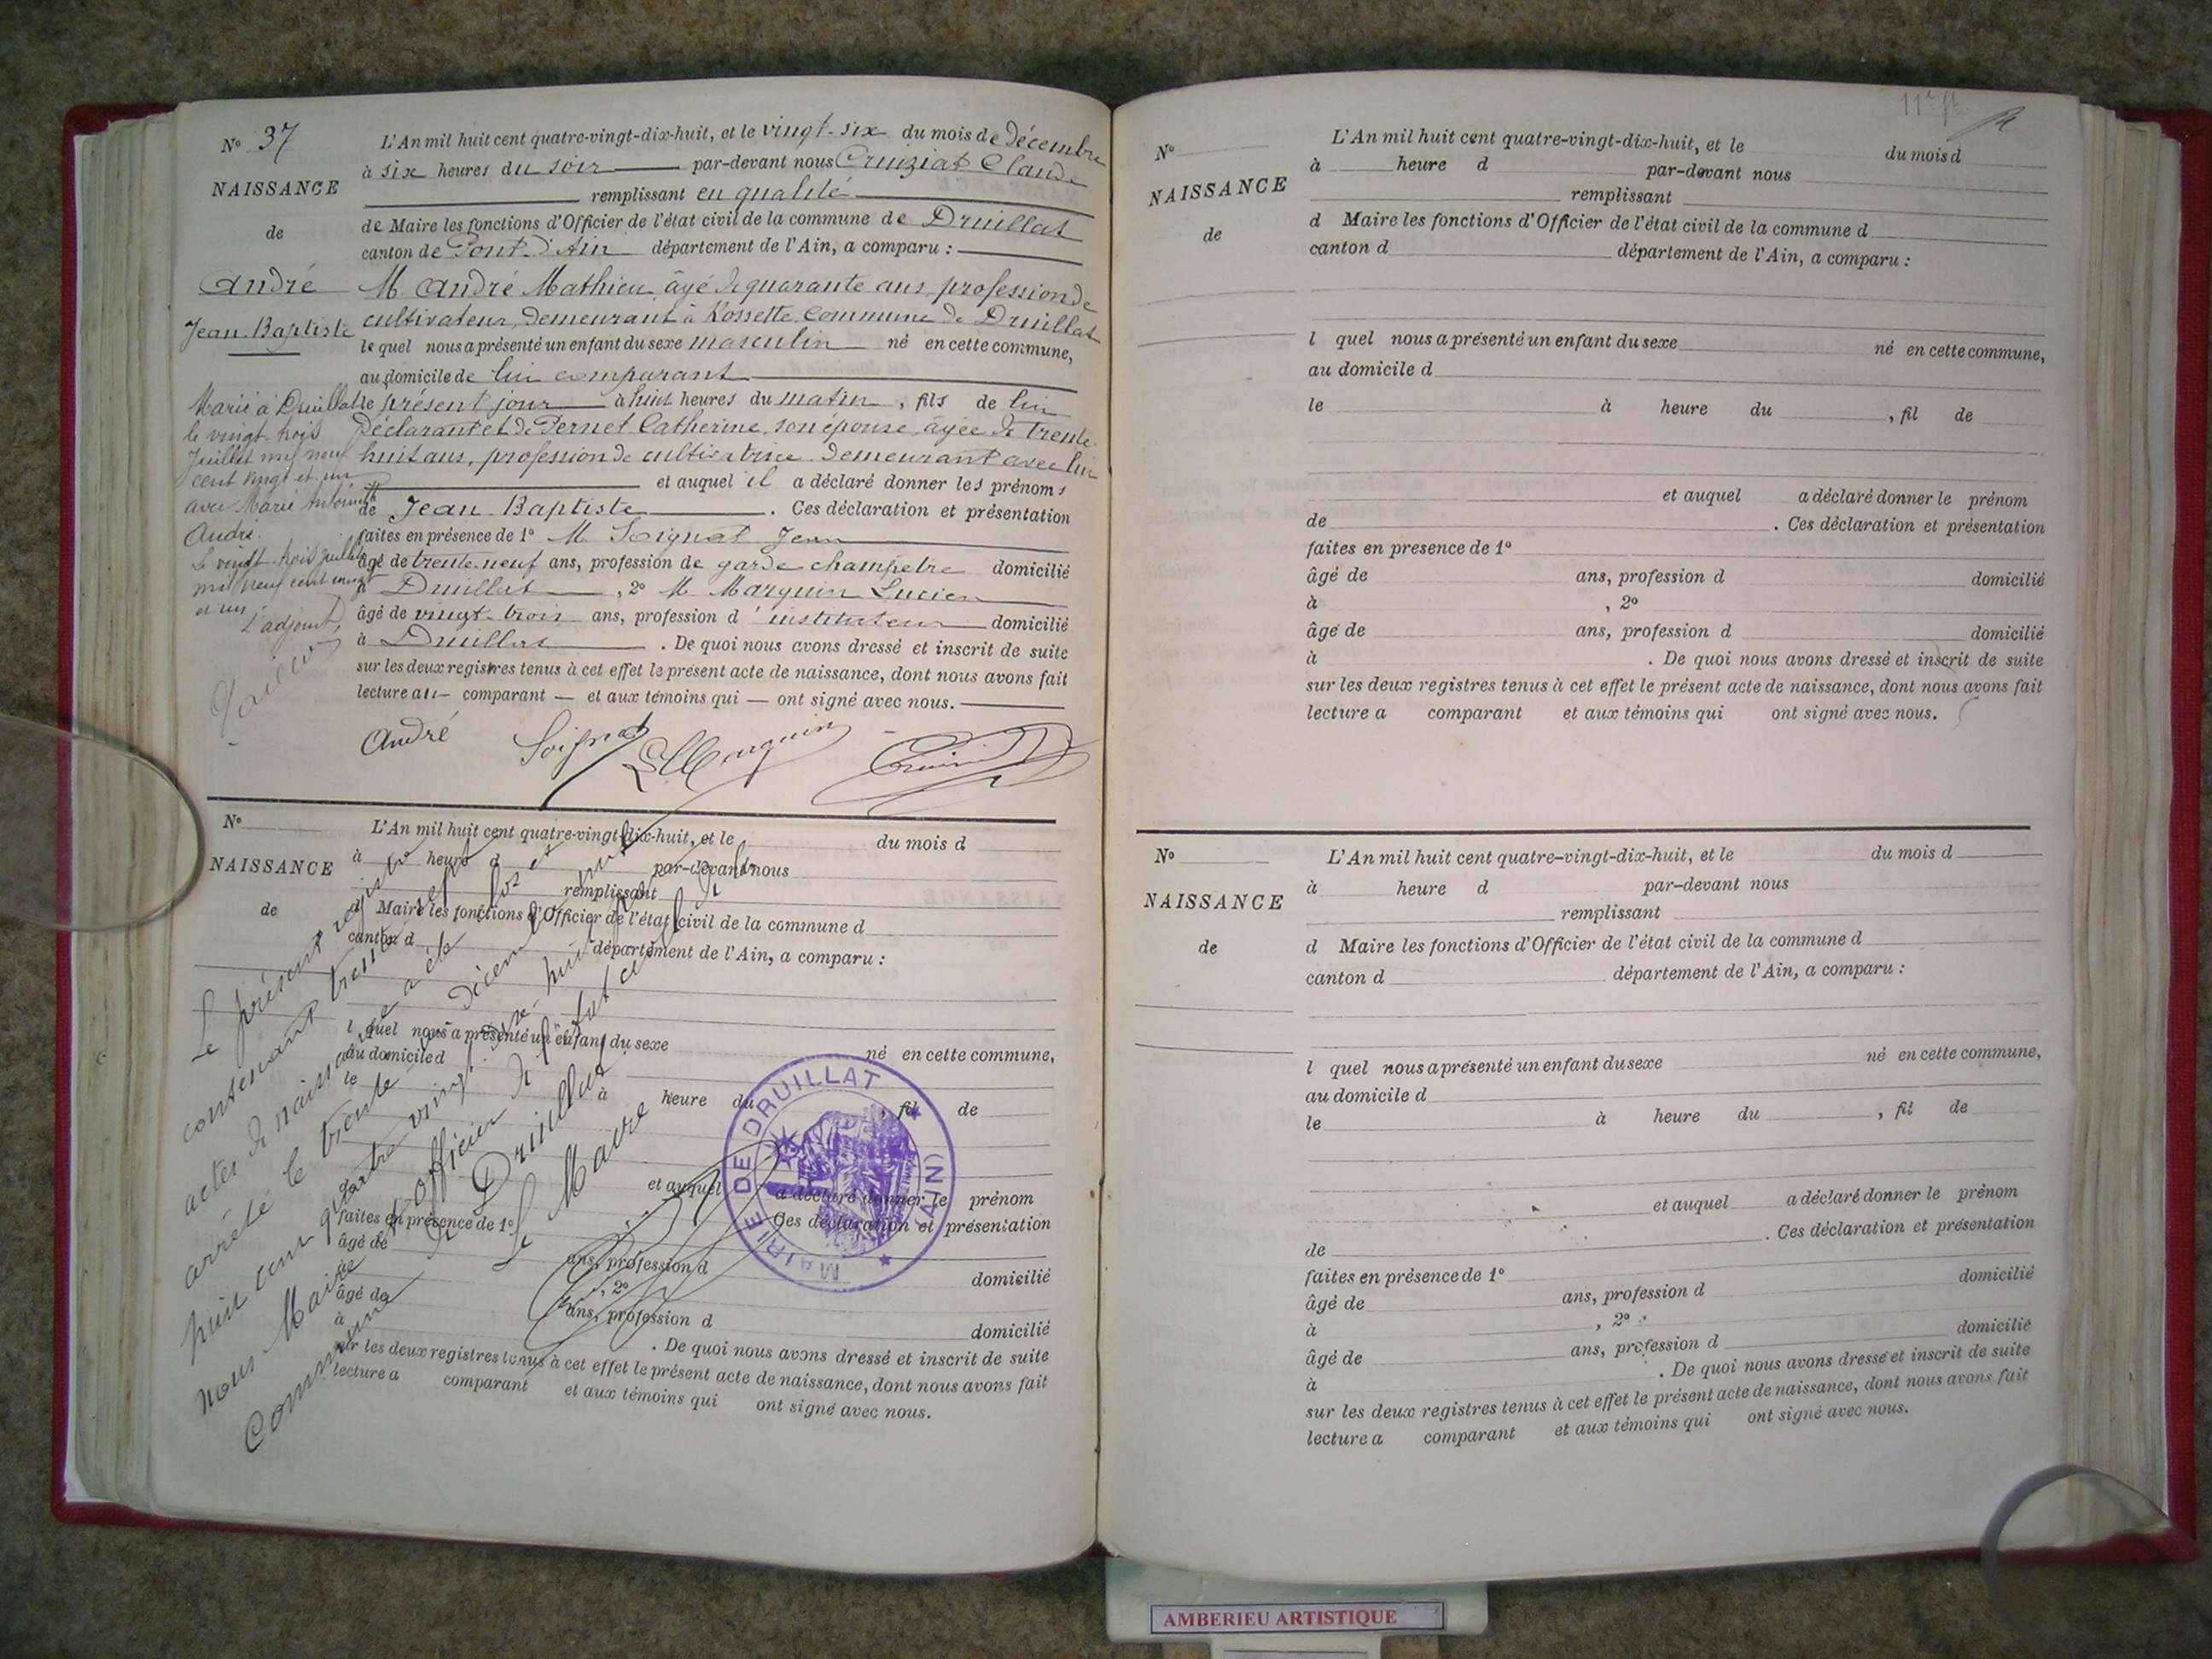 N° 37
NAISSANCE
de
André
Jean Baptiste
Marié à Druillat
le vingt-trois
Juillet mil neuf
cent vingt et un
avec Marie Antoinette
André.
Le vingt-trois juillet
mil neuf cent vingt
et un,
L'adjoint,
L'An mil huit cent quatre-vingt-dix-huit, et le vingt-six du mois de décembre
à six heures du soir par-devant nous Cruiziat Claude
remplissant en qualité
de Maire les fonctions d'Officier de l'état civil de la commune de Druillat
canton de Pont-d'Ain département de l'Ain, a comparu :
M. André Mathieu, âgé de quarante ans, profession de
cultivateur, demeurant à Rossette, commune de Druillat
lequel nous a présenté un enfant du sexe masculin né en cette commune,
au domicile de lui comparant
le présent jour à huit heures du matin, fils de lui
déclarant et de Pernet Catherine, son épouse, âgée de trente-
huit ans, profession de cultivatrice demeurant avec lui
et auquel il a déclaré donner les prénoms
de Jean Baptiste. Ces déclaration et présentation
faites en présence de 1° M. Soignat Jean
âgé de trente-neuf ans, profession de garde champêtre domicilié
à Druillat, 2° M. Marquin Lucien
âgé de vingt-trois ans, profession d'instituteur domicilié
à Druillat. De quoi nous avons dressé et inscrit de suite
sur les deux registres tenus à cet effet le présent acte de naissance, dont nous avons fait
lecture au comparant et aux témoins qui ont signé avec nous.
André Soignat L Marquin Cruiziat
N°
NAISSANCE
de
L'An mil huit cent quatre-vingt-dix-huit, et le du mois d
à heure d par-devant nous
remplissant
d Maire les fonctions d'Officier de l'état civil de la commune d
canton d département de l'Ain, a comparu :
l quel nous a présenté un enfant du sexe né en cette commune,
au domicile d
le à heure du , fil de
et auquel a déclaré donner le prénom
Ces déclaration et présentation
faites en présence de 1°
âgé de ans, profession d domicilié
à , 2°
âgé de ans, profession d domicilié
à . De quoi nous avons dressé et inscrit de suite
sur les deux registres tenus à cet effet le présent acte de naissance, dont nous avons fait
lecture a comparant et aux témoins qui ont signé avec nous.
Le présent registre
contenant trente sept
actes de naissance a été clos et
arrêté le trente décembre mil
huit cent quatre vingt dix huit par
nous Maire, officier de l'état civil de la
Commune de Druillat
Le Maire
MAIRIE DE DRUILLAT (AIN)
N°
NAISSANCE
de
L'An mil huit cent quatre-vingt-dix-huit, et le du mois d
à heure d par-devant nous
remplissant
d Maire les fonctions d'Officier de l'état civil de la commune d
canton d département de l'Ain, a comparu :
l quel nous a présenté un enfant du sexe né en cette commune,
au domicile d
le à heure du , fil de
et auquel a déclaré donner le prénom
de . Ces déclaration et présentation
faites en presence de 1°
âgé de ans, profession d domicilié
à , 2°
âgé de ans, profession d domicilié
à . De quoi nous avons dressé et inscrit de suite
sur les deux registres tenus à cet effet le présent acte de naissance, dont nous avons fait
lecture a comparant et aux témoins qui ont signé avec nous.
N°
NAISSANCE
de
L'An mil huit cent quatre-vingt-dix-huit, et le du mois d
à heure d par-devant nous
remplissant
d Maire les fonctions d'Officier de l'état civil de la commune d
canton d département de l'Ain, a comparu :
l quel nous a présenté un enfant du sexe né en cette commune,
au domicile d
le à heure du , fil de
et auquel a déclaré donner le prénom
de . Ces déclaration et présentation
faites en présence de 1°
âgé de ans, profession d domicilié
à , 2°
âgé de ans, profession d domicilié
à . De quoi nous avons dressé et inscrit de suite
sur les deux registres tenus à cet effet le présent acte de naissance, dont nous avons fait
lecture a comparant et aux témoins qui ont signé avec nous.
AMBERIEU ARTISTIQUE